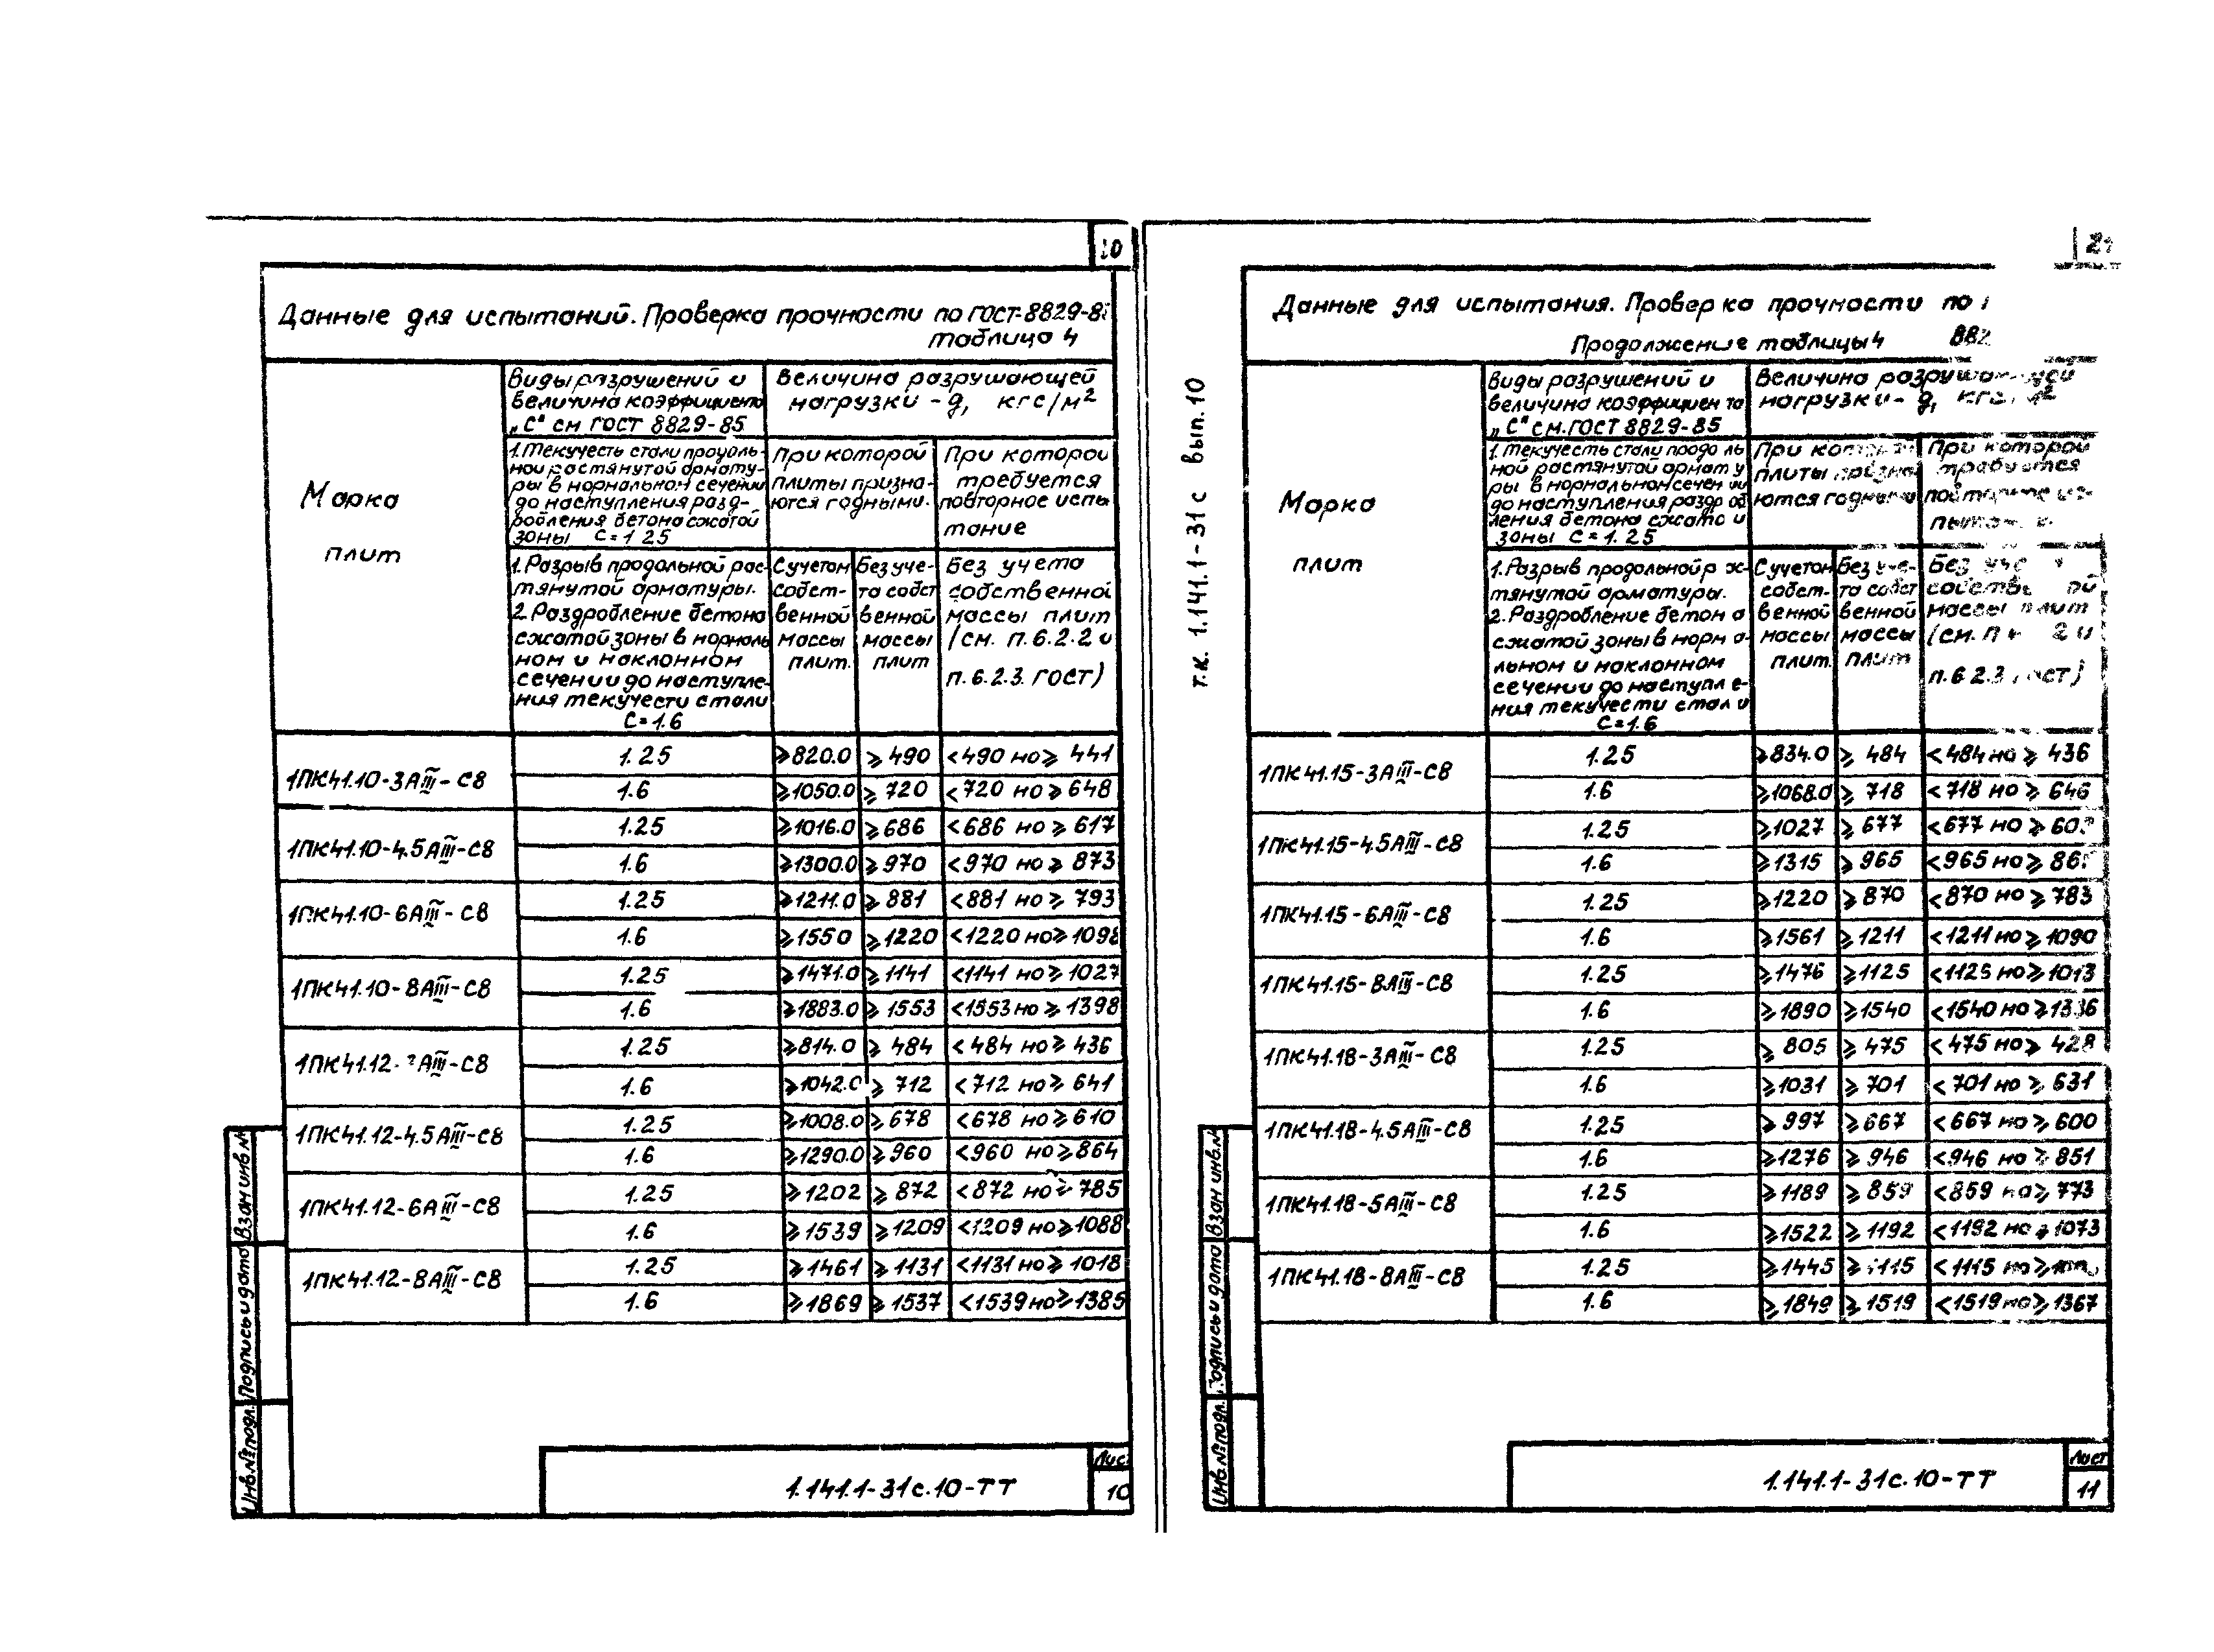 10
Данные для испытаний. Проверка прочности по ГОСТ-8829-8
таблица 4
Марка
плит
Виды разрушений и
величина коэффициента
„С" см ГОСТ 8829-85
Величина разрушающей
нагрузки - q, кгс/м²
1. Текучесть стали продоль-
ной растянутой армату-
ры в нормальном сечении
до наступления разд-
робления бетона сжатой
зоны С=1 25
При которой
плиты призна-
ются годными.
При которой
требуется
повторное испы
тание
1. Разрыв продольной рас-
тянутой арматуры.
2. Раздробление бетона
сжатой зоны в нормаль
ном и наклонном
сечении до наступле-
ния текучести стали
С=1.6
С учетом
собст-
венной
массы
плит.
Без уче-
та собст
венной
массы
плит
Без учета
собственной
массы плит
(см. п.6.2.2 и
п.6.2.3. ГОСТ)
1ПК41.10-3АIII-С8
1.25 ⩾820.0 ⩾490 <490 но⩾ 441
1.6 ⩾1050.0 ⩾720 <720 но⩾648
1ПК41.10-4.5АIII-С8
1.25 ⩾1016.0 ⩾686 <686 но⩾ 617
1.6 ⩾1300.0 ⩾970 <970 но⩾ 873
1ПК41.10-6АIII-С8
1.25 ⩾1211.0 ⩾881 <881 но⩾ 793
1.6 ⩾1550 ⩾1220 <1220 но⩾1098
1ПК41.10-8АIII-С8
1.25 ⩾1471.0 ⩾1141 <1141 но⩾1027
1.6 ⩾1883.0 ⩾1553 <1553 но⩾1398
1ПК41.12- АIII-С8
1.25 ⩾814.0 ⩾484 <484 но⩾ 436
1.6 ⩾1042.0 ⩾712 <712 но⩾ 641
1ПК41.12-4.5АIII-С8
1.25 ⩾1008.0 ⩾678 <678 но⩾610
1.6 ⩾1290.0 ⩾960 <960 но⩾864
1ПК41.12-6АIII-С8
1.25 ⩾1202 ⩾872 <872 но⩾785
1.6 ⩾1539 ⩾1209 <1209 но⩾1088
1ПК41.12-8АIII-С8
1.25 ⩾1461 ⩾1131 <1131 но⩾ 1018
1.6 ⩾1869 ⩾1537 <1539 но⩾1385
Взам инв.№
Подпись и дата
Инв.№подл.
1.141.1-31с.10-ТТ
Лист
10
т.к. 1.141.1-31с вып.10
Данные для испытания. Проверка прочности по
Продолжение таблицы 4 882
Марка
плит
Виды разрушений и
величина коэффициента
„С" см.ГОСТ 8829-85
Величина разрушающей
нагрузки- q, кгс/м²
1. Текучесть стали продоль
ной растянутой армату
ры в нормальном сечении
до наступления раздроб
ления бетона сжатой
зоны С=1.25
При которой
плиты призна
ются годными
При которой
требуется
повторное ис-
пытание
1. Разрыв продольной рас-
тянутой арматуры.
2. Раздробление бетона
сжатой зоны в норма-
льном и наклонном
сечении до наступле-
ния текучести стали
С=1.6
С учетом
собст-
венной
массы
плит.
Без уче-
та собст
венной
массы
плит
Без
массы плит
(см. п 2 и
п.6.2.3 ГОСТ)
1ПК41.15-3АIII-С8
1.25 ⩾834.0 ⩾484 <484 но⩾ 436
1.6 ⩾1068.0 ⩾718 <718 но⩾ 646
1ПК41.15-4.5АIII-С8
1.25 ⩾1027 ⩾677 <677 но⩾
1.6 ⩾1315 ⩾965 <965 но⩾
1ПК41.15-6АIII-С8
1.25 ⩾1220 ⩾870 <870 но⩾783
1.6 ⩾1561 ⩾1211 <1211 но⩾1090
1ПК41.15-8АIII-С8
1.25 ⩾1476 ⩾1125 <1125 но⩾1013
1.6 ⩾1890 ⩾1540 <1540 но⩾
1ПК41.18-3АIII-С8
1.25 ⩾805 ⩾475 <475 но⩾ 428
1.6 ⩾1031 ⩾701 <701 но⩾ 631
1ПК41.18-4.5АIII-С8
1.25 ⩾997 ⩾667 <667 но⩾600
1.6 ⩾1276 ⩾946 <946 но⩾851
1ПК41.18-5АIII-С8
1.25 ⩾1189 ⩾859 <859 но⩾773
1.6 ⩾1522 ⩾1192 <1192 но⩾1073
1ПК41.18-8АIII-С8
1.25 ⩾1445 ⩾1115 <1115 но⩾
1.6 ⩾1849 ⩾1519 <1519 но⩾1367
Взам инв.№
Подпись и дата
Инв.№подл.
1.141.1-31с.10-ТТ
Лист
11